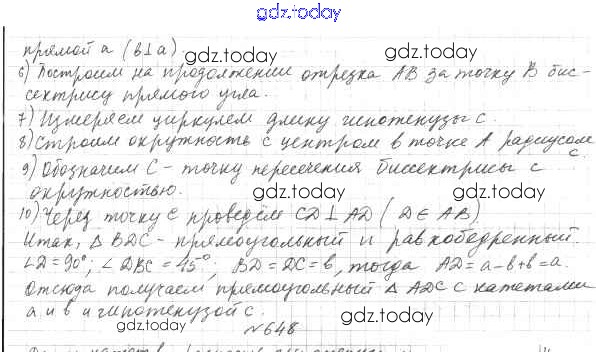 gdz.today
прямой a (b⊥a).
gdz.today
gdz.today
6) Построим на продолжении отрезка AB за точку B бис-
сектрису прямого угла.
gdz.today
7) Измеряем циркулем длину гипотенузы c.
8) Строим окружность с центром в точке A радиусом
c.
9) Обозначим C - точку пересечения биссектрисы с
окружностью.
gdz.today
gdz.today
10) Через точку C проведём CD⊥AD (D∈AB)
Итак, △BDC - прямоугольный и равнобедренный.
∠D=90°; ∠DBC=45°; BD=DC=b, тогда AD=a-b+b=a.
Отсюда получаем прямоугольный △ADC с катетами
a и b и гипотенузой c.
gdz.today
gdz.today
№648